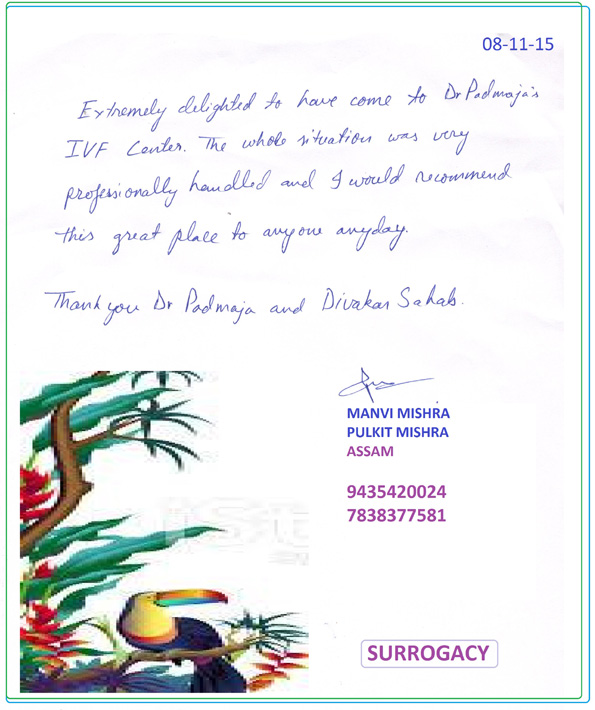 08-11-15
Extremely delighted to have come to Dr Padmaja's
IVF Center. The whole situation was very
professionally handled and I would recommend
this great place to anyone anyday.
Thank you Dr Padmaja and Divakar Sahab.
MANVI MISHRA
PULKIT MISHRA
ASSAM
9435420024
7838377581
SURROGACY